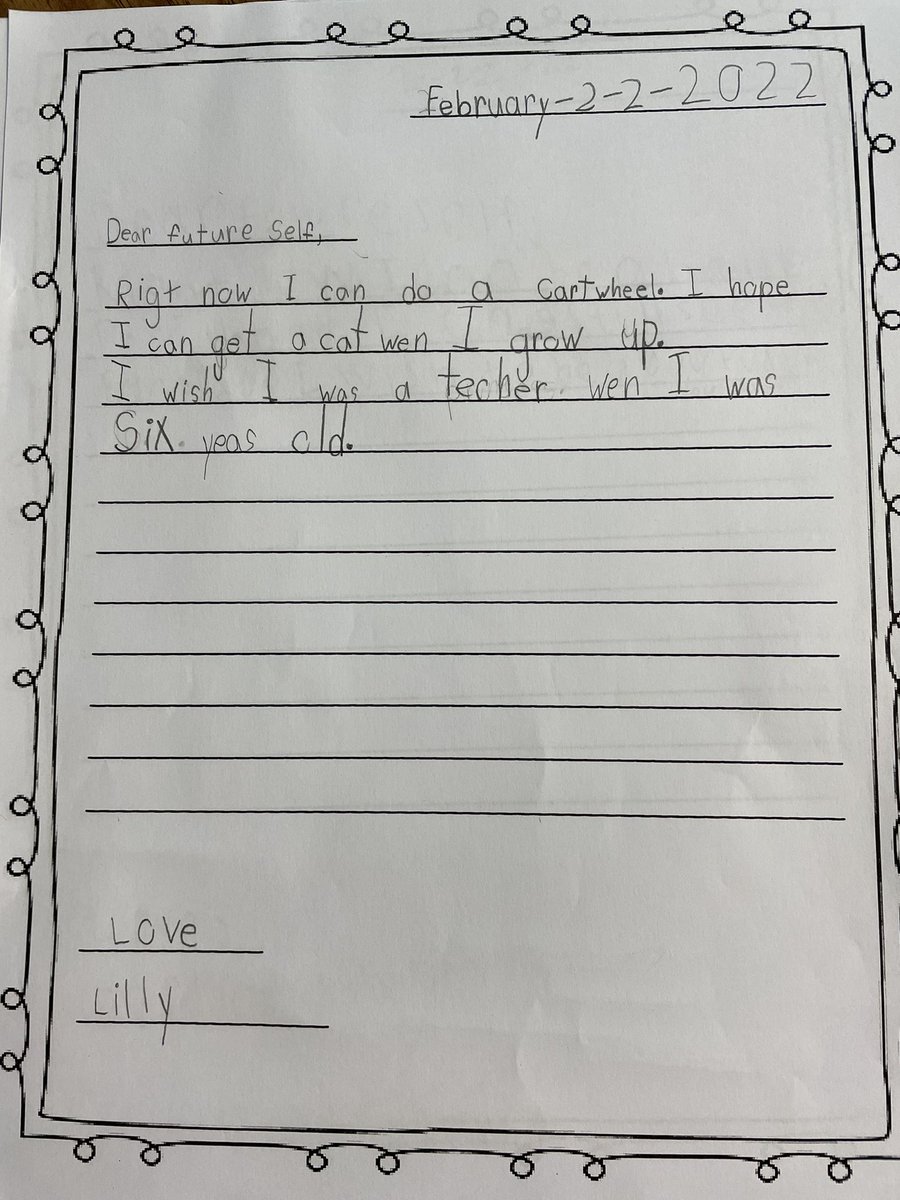 February-2-2-2022
Dear future Self,
Rigt now I can do a Cartwheel. I hope
I can get a cat wen I grow up.
I wish I was a techer. wen I was
Six. yeas old.
Love
Lilly